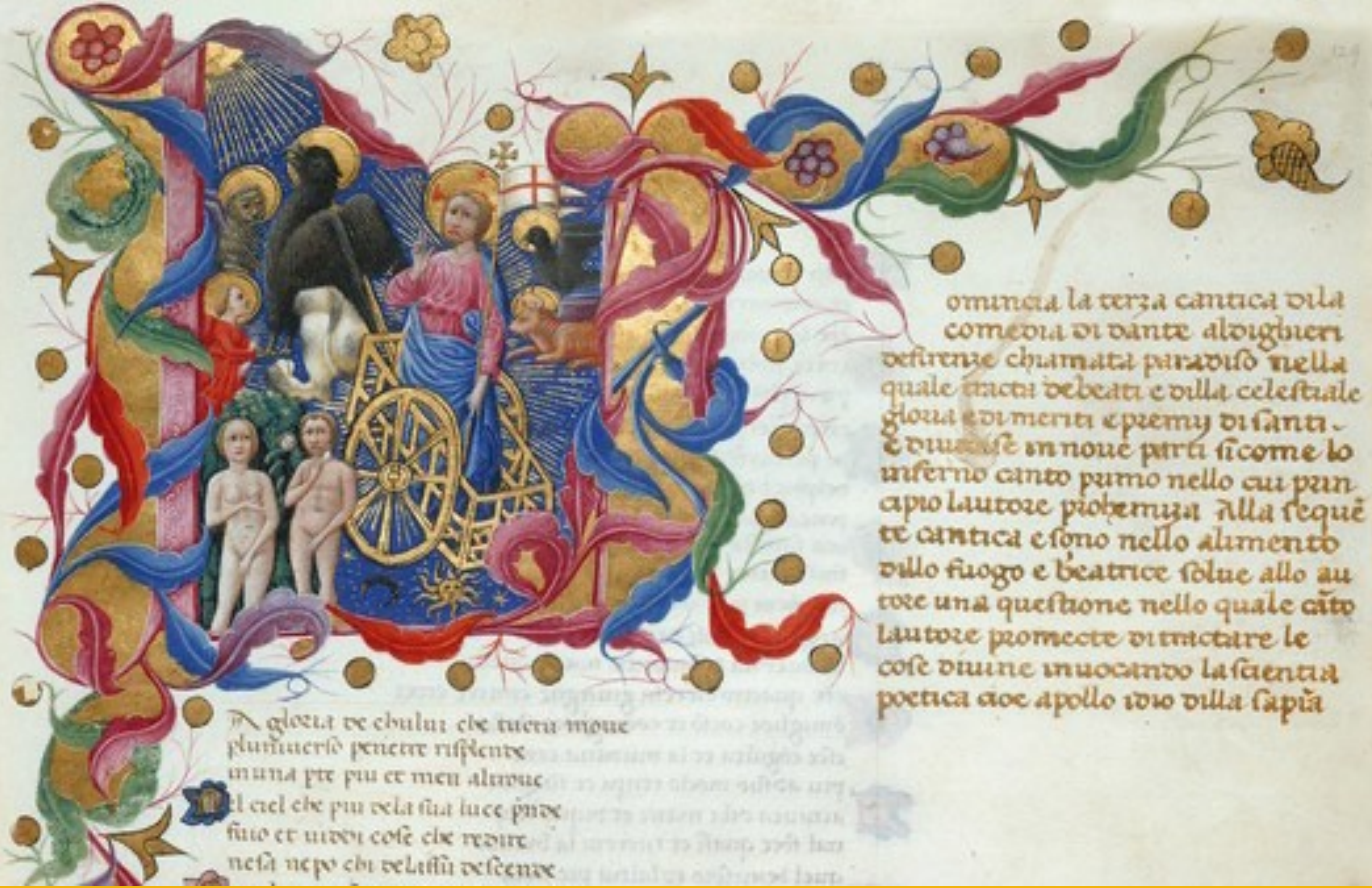 omincia la terza cantica dila
comedia di dante aldighieri
defirenze chiamata paradiso nella
quale tracta debeati e dilla celestiale
gloria e di meriti e premij di santi
E diuidese in noue parti sicome lo
inferno canto primo nello cui prin
cipio lautore prohemiza Alla seque
te cantica e sono nello alimento
dillo fuogo e beatrice solue allo au
tore una questione nello quale cāto
lautore promecte di tractare le
cose diuine inuocando la scientia
poetica cioe apollo idio dilla sapia
A gloria de chului che tucto moue
pluniuerso penetre risplende
in una pte piu et men altroue
el ciel che piu dela sua luce pnde
fuio et uiddi cose che redire
nesa nepo chi delassu descende